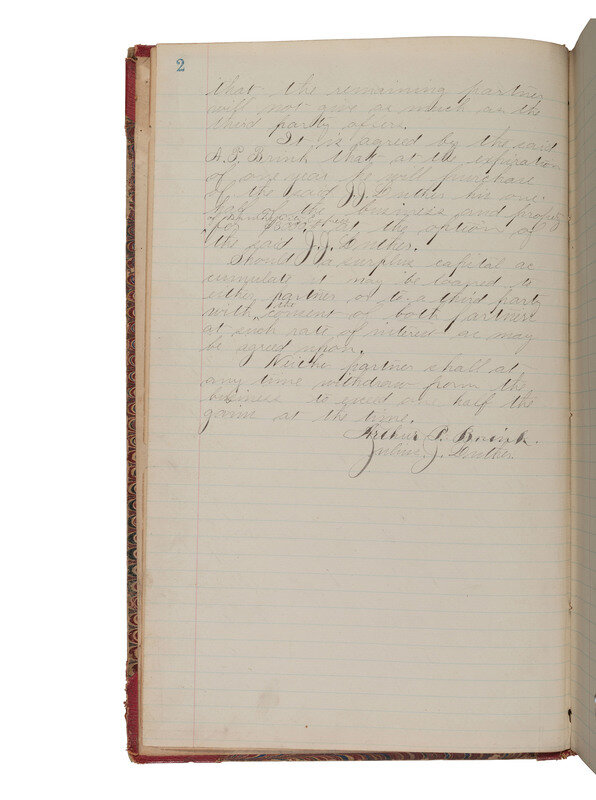 2
that the remaining partner
will not give as much as the
third party offers.
It is agreed by the said
A. P. Brink that at the expiration
of one year he will purchase
of the said J. J. Duther his one
half of the business and
for at the option of
the said J. J. Duther.
Should a surplus capital ac
cumulate it may be loaned to
either partner or to a third party
with the consent of both partners
at such rate of interest as may
be agreed upon.
Neither partner shall at
any time withdraw from the
business to exceed one half the
gains at the time.
Arthur P. Brink.
Julius J. Duther.